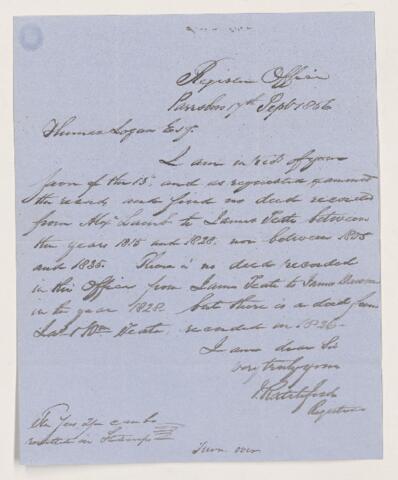 Register Office
Parrsboro 17th Sept 1856
Thomas Logan Esq.
I am in rect of yours
favor of the 15th and as requested examined
the records and find no deed recorded
from Alexr Lamb to James Teate between
the years 1815 and 1828. nor between 1825
and 1835. There is no deed recorded
in this Office from James Teate to James
in the year 1828 but there is a deed from
Jas & Wm Teate, recorded in 1826.
I am dear Sir
very truly yours
J Ratchford
Registrar
The fees you can be
in Stamps
Turn over